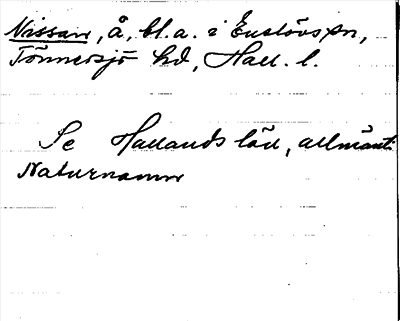 Nissan, å, bl.a. i Enslövs sn,
Tönnersjö hd, Hall. l.
Se Hallands län, allmänt:
Naturnamn